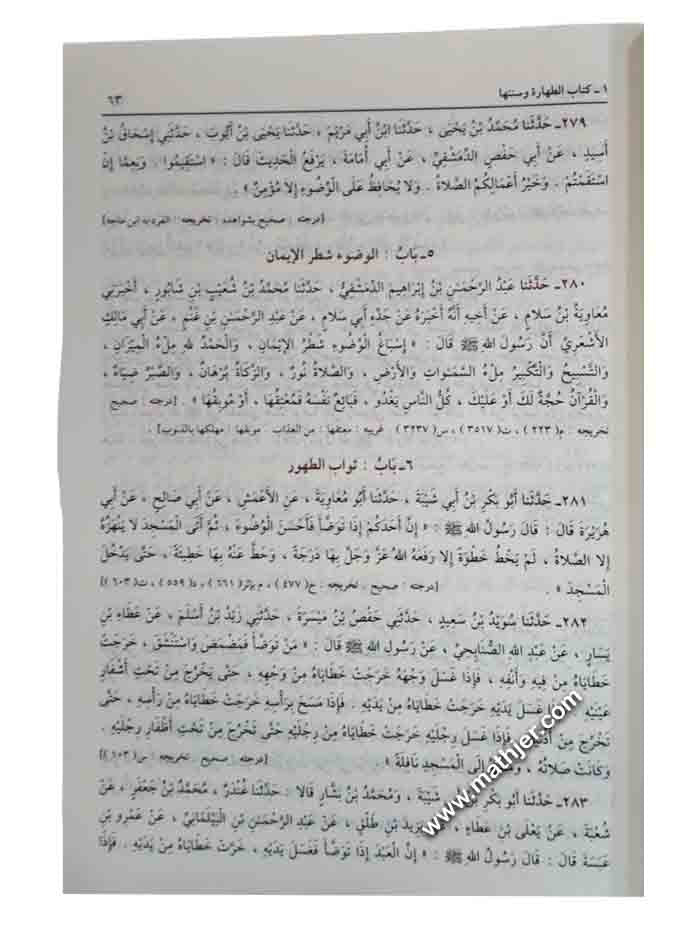 ١ - كتاب الطهارة وسننها ٦٣
٢٧٩ـ حَدَّثَنَا مُحَمَّدُ بْنُ يَحْيَى ، حَدَّثَنَا ابْنُ أَبِي مَرْيَمَ ، حَدَّثَنَا يَحْيَى بْنُ أَيُّوبَ ، حَدَّثَنِي إِسْحَاقُ بْنُ
أَسِيدٍ ، عَنْ أَبِي حَفْصٍ الدِّمَشْقِيِّ ، عَنْ أَبِي أُمَامَةَ ، يَرْفَعُ الْحَدِيثَ قَالَ : « اسْتَقِيمُوا . وَنِعِمَّا إِنِ
اسْتَقَمْتُمْ . وَخَيْرُ أَعْمَالِكُمُ الصَّلاةُ . وَلا يُحَافِظُ عَلَى الْوُضُوءِ إِلا مُؤْمِنٌ »
[درجته : صحيح بشواهده ؛ تخريجه : انفرد به ابن ماجه]
٥ـ بَابُ : الوضوء شطر الإيمان
٢٨٠ـ حَدَّثَنَا عَبْدُ الرَّحْمَنِ بْنُ إِبْرَاهِيمَ الدِّمَشْقِيُّ ، حَدَّثَنَا مُحَمَّدُ بْنُ شُعَيْبِ بْنِ شَابُورَ ، أَخْبَرَنِي
مُعَاوِيَةُ بْنُ سَلامٍ ، عَنْ أَخِيهِ أَنَّهُ أَخْبَرَهُ عَنْ جَدِّهِ أَبِي سَلامٍ ، عَنْ عَبْدِ الرَّحْمَنِ بْنِ غَنْمٍ ، عَنْ أَبِي مَالِكٍ
الأَشْعَرِيِّ أَنَّ رَسُولَ اللهِ ﷺ قَالَ : « إِسْبَاغُ الْوُضُوءِ شَطْرُ الإِيمَانِ ، وَالْحَمْدُ للهِ مِلْءُ الْمِيزَانِ ،
وَالتَّسْبِيحُ وَالتَّكْبِيرُ مِلْءُ السَّمَوَاتِ وَالأَرْضِ ، وَالصَّلاةُ نُورٌ ، وَالزَّكَاةُ بُرْهَانٌ ، وَالصَّبْرُ ضِيَاءٌ ،
وَالْقُرْآنُ حُجَّةٌ لَكَ أَوْ عَلَيْكَ ، كُلُّ النَّاسِ يَغْدُو ، فَبَائِعٌ نَفْسَهُ فَمُعْتِقُهَا ، أَوْ مُوبِقُهَا » . [درجته : صحيح
تخريجه : م( ٢٢٣ ) ، ت( ٣٥١٧ ) ، س( ٢٤٣٧ ) غريبه : معتقها : من العذاب . موبقها : مهلكها بالذنوب] .
٦ـ بَابُ : ثواب الطهور
٢٨١ـ حَدَّثَنَا أَبُو بَكْرِ بْنُ أَبِي شَيْبَةَ ، حَدَّثَنَا أَبُو مُعَاوِيَةَ ، عَنِ الأَعْمَشِ ، عَنْ أَبِي صَالِحٍ ، عَنْ أَبِي
هُرَيْرَةَ قَالَ : قَالَ رَسُولُ اللهِ ﷺ : « إِنَّ أَحَدَكُمْ إِذَا تَوَضَّأَ فَأَحْسَنَ الْوُضُوءَ ، ثُمَّ أَتَى الْمَسْجِدَ لا يَنْهَزُهُ
إِلا الصَّلاةُ ، لَمْ يَخْطُ خَطْوَةً إِلا رَفَعَهُ اللهُ عَزَّ وَجَلَّ بِهَا دَرَجَةً ، وَحَطَّ عَنْهُ بِهَا خَطِيئَةً ، حَتَّى يَدْخُلَ
الْمَسْجِدَ » . [درجته : صحيح . تخريجه : خ( ٤٧٧ ) ، م بإثر( ٦٦١ ) ، د( ٥٥٩ ) ، ت( ٦٠٣ )]
٢٨٢ـ حَدَّثَنَا سُوَيْدُ بْنُ سَعِيدٍ ، حَدَّثَنِي حَفْصُ بْنُ مَيْسَرَةَ ، حَدَّثَنِي زَيْدُ بْنُ أَسْلَمَ ، عَنْ عَطَاءِ بْنِ
يَسَارٍ ، عَنْ عَبْدِ اللهِ الصُّنَابِحِيِّ ، عَنْ رَسُولِ اللهِ ﷺ قَالَ : « مَنْ تَوَضَّأَ فَمَضْمَضَ وَاسْتَنْشَقَ ، خَرَجَتْ
خَطَايَاهُ مِنْ فِيهِ وَأَنْفِهِ ، فَإِذَا غَسَلَ وَجْهَهُ خَرَجَتْ خَطَايَاهُ مِنْ وَجْهِهِ ، حَتَّى يَخْرُجَ مِنْ تَحْتِ أَشْفَارِ
عَيْنَيْهِ غَسَلَ يَدَيْهِ خَرَجَتْ خَطَايَاهُ مِنْ يَدَيْهِ . فَإِذَا مَسَحَ بِرَأْسِهِ خَرَجَتْ خَطَايَاهُ مِنْ رَأْسِهِ ، حَتَّى
تَخْرُجَ مِنْ أُذُنَيْهِ فَإِذَا غَسَلَ رِجْلَيْهِ خَرَجَتْ خَطَايَاهُ مِنْ رِجْلَيْهِ حَتَّى تَخْرُجَ مِنْ تَحْتِ أَظْفَارِ رِجْلَيْهِ .
وَكَانَتْ صَلاتُهُ ، إِلَى الْمَسْجِدِ نَافِلَةً » . [درجته : صحيح . تخريجه : س( ١٠٣ )]
٢٨٣ـ حَدَّثَنَا أَبُو بَكْرِ شَيْبَةَ ، وَمُحَمَّدُ بْنُ بَشَّارٍ قَالا : حَدَّثَنَا غُنْدَرٌ ، مُحَمَّدُ بْنُ جَعْفَرٍ ، عَنْ
شُعْبَةَ ، عَنْ يَعْلَى بْنِ عَطَاءٍ ، يَزِيدَ بْنِ طَلْقٍ ، عَنْ عَبْدِ الرَّحْمَنِ بْنِ الْبَيْلَمَانِيِّ ، عَنْ عَمْرِو بْنِ
عَبَسَةَ قَالَ : قَالَ رَسُولُ اللهِ ﷺ : « إِنَّ الْعَبْدَ إِذَا تَوَضَّأَ فَغَسَلَ يَدَيْهِ ، خَرَّتْ خَطَايَاهُ مِنْ يَدَيْهِ . فَإِذَا
www.mathjer.com